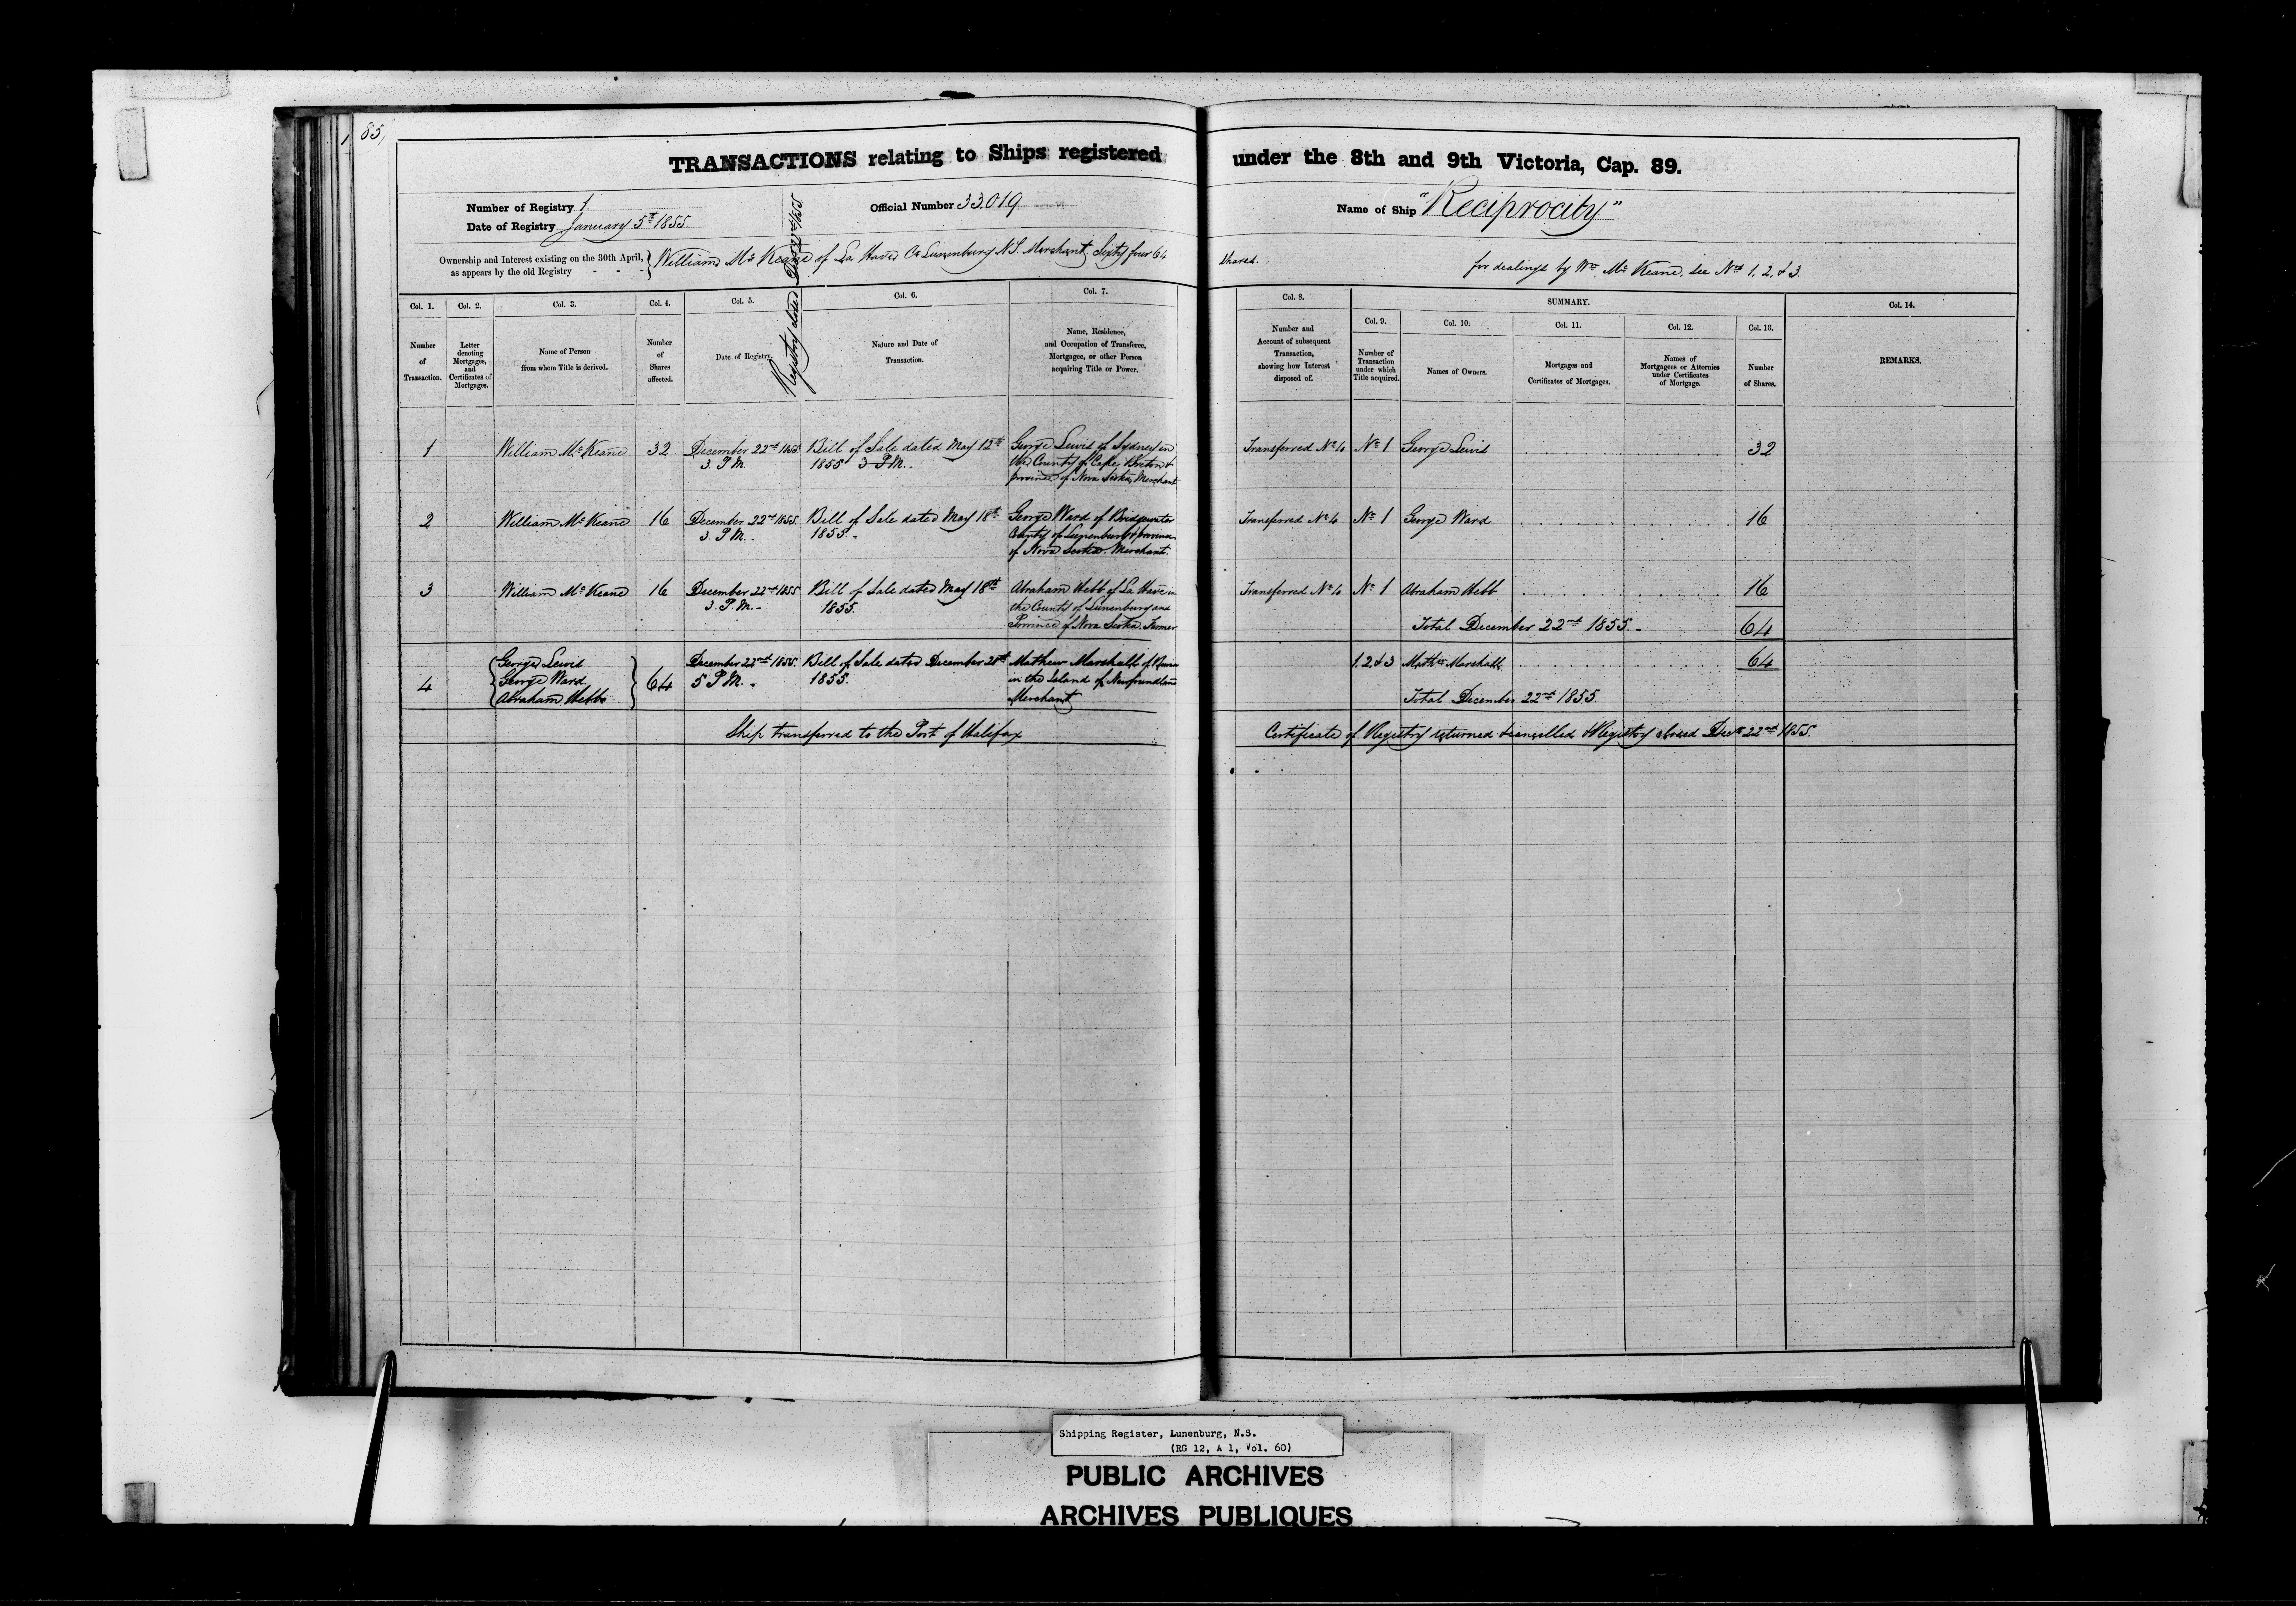 85,
TRANSACTIONS relating to Ships registered under the 8th and 9th Victoria, Cap. 89.
Number of Registry 1.
Official Number 33.019
Name of Ship "Reciprocity"
Date of Registry January 5th 1855
Registry closed Decr 22nd 1855
Ownership and Interest existing on the 30th April, as appears by the old Registry - - - } William McKeane of La Have Co Lunenburg N.S. Merchant Sixty four 64 Shares.
for dealings by Wm McKeane, see Nos 1, 2, & 3.
Col. 1. Col. 2. Col. 3. Col. 4. Col. 5. Col. 6. Col. 7. Col. 8. SUMMARY. Col. 14.
Col. 9. Col. 10. Col. 11. Col. 12. Col. 13.
Number of Transaction.
Letter denoting Mortgages, and Certificates of Mortgages.
Name of Person from whom Title is derived.
Number of Shares affected.
Date of Registry.
Nature and Date of Transaction.
Name, Residence, and Occupation of Transferee, Mortgagee, or other Person acquiring Title or Power.
Number and Account of subsequent Transaction, showing how Interest disposed of.
Number of Transaction under which Title acquired.
Names of Owners.
Mortgages and Certificates of Mortgages.
Names of Mortgagees or Attornies under Certificates of Mortgage.
Number of Shares.
REMARKS.
1 William McKeane 32 December 22nd 1855 Bill of Sale dated May 12th George Lewis of Sydney in Transferred No 4 No 1 George Lewis 32
3. P.M. 1855 3 P.M. the County of Cape Breton &
province of Nova Scotia, Merchant
2 William McKeane 16 December 22nd 1855 Bill of Sale dated May 18th George Ward of Bridgewater Transferred No 4 No 1 George Ward 16
3. P.M. 1855. County of Lunenburg & province
of Nova Scotia. Merchant.
3 William McKeane 16 December 22nd 1855 Bill of Sale dated May 18th Abraham Hebb of La Have in Transferred No 4 No 1 Abraham Hebb 16
3. P.M. 1855. the County of Lunenburg and
Province of Nova Scotia. Farmer
Total December 22nd 1855. 64
George Lewis December 22nd 1855. Bill of Sale dated December 28th Mathew Marshall of 1. 2. & 3 Mathw Marshall 64
4 George Ward 64 5 P.M. 1855. in the Island of Newfoundland
Abraham Hebb Merchant Total December 22nd 1855.
Ship transferred to the Port of Halifax Certificate of Registry returned & cancelled & Registry closed Decr 22nd 1855.
Shipping Register, Lunenburg, N.S.
(RG 12, A 1, Vol. 60)
PUBLIC ARCHIVES
ARCHIVES PUBLIQUES